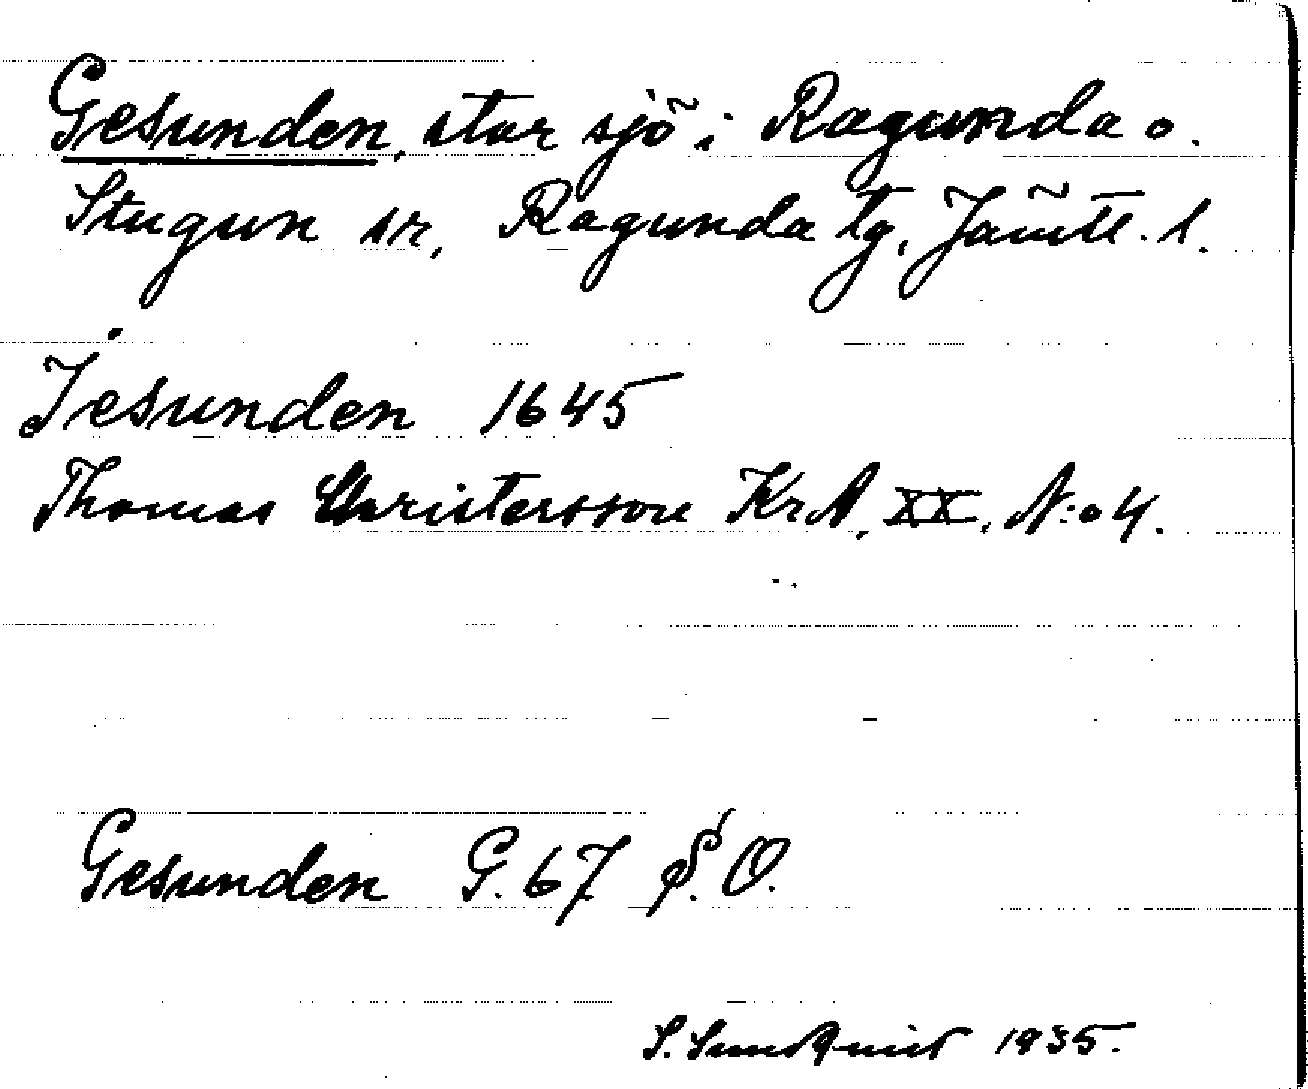 Gesunden, stor sjö i Ragunda o.
Stugun sr, Ragunda tg, Jämtl. l.
Jesunden 1645
Thomas Christersson KrA, XX, N:o 4.
Gesunden G. 67 S. O.
S. Sundquist 1935.